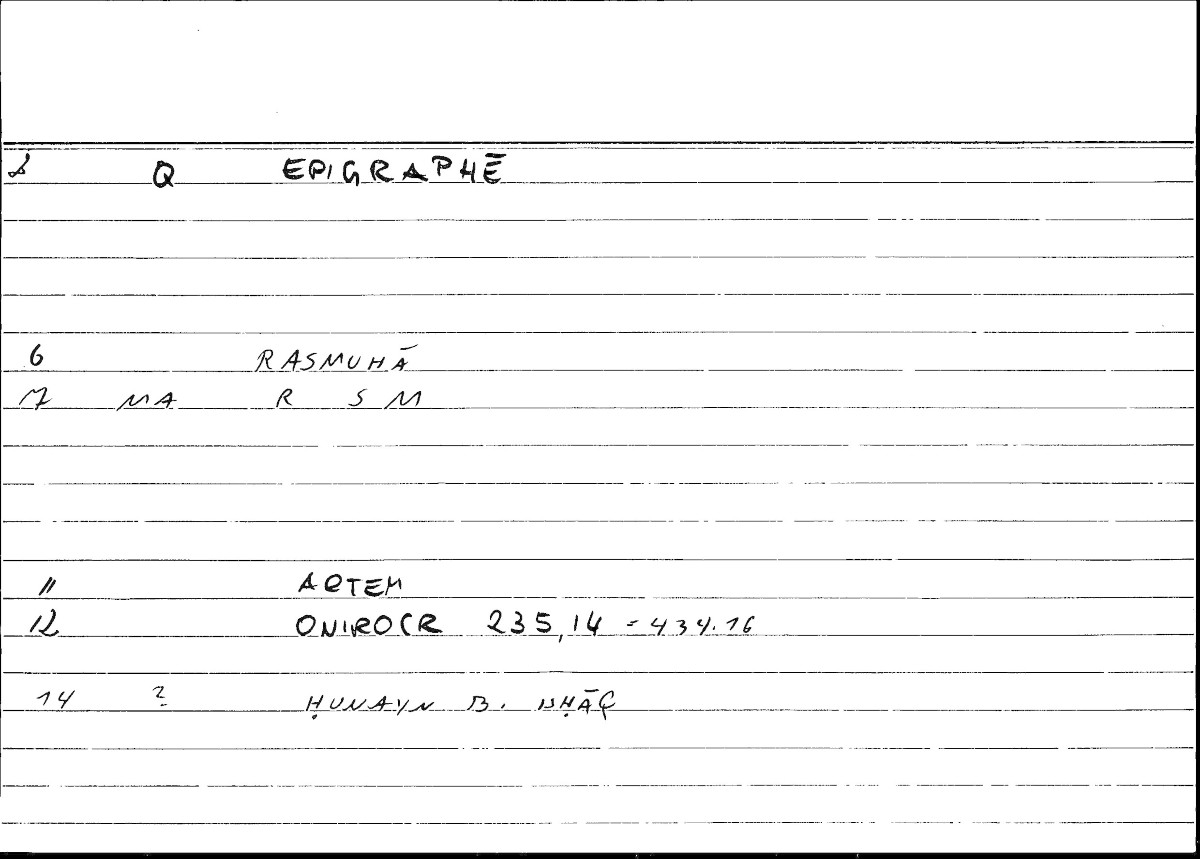 Q EPIGRAPHĒ
6 RASMUHĀ
7 MA R S M
11 ARTEM
12 ONIROCR 235,14 = 434.16
14 ? ḤUNAYN B. ISḤĀQ